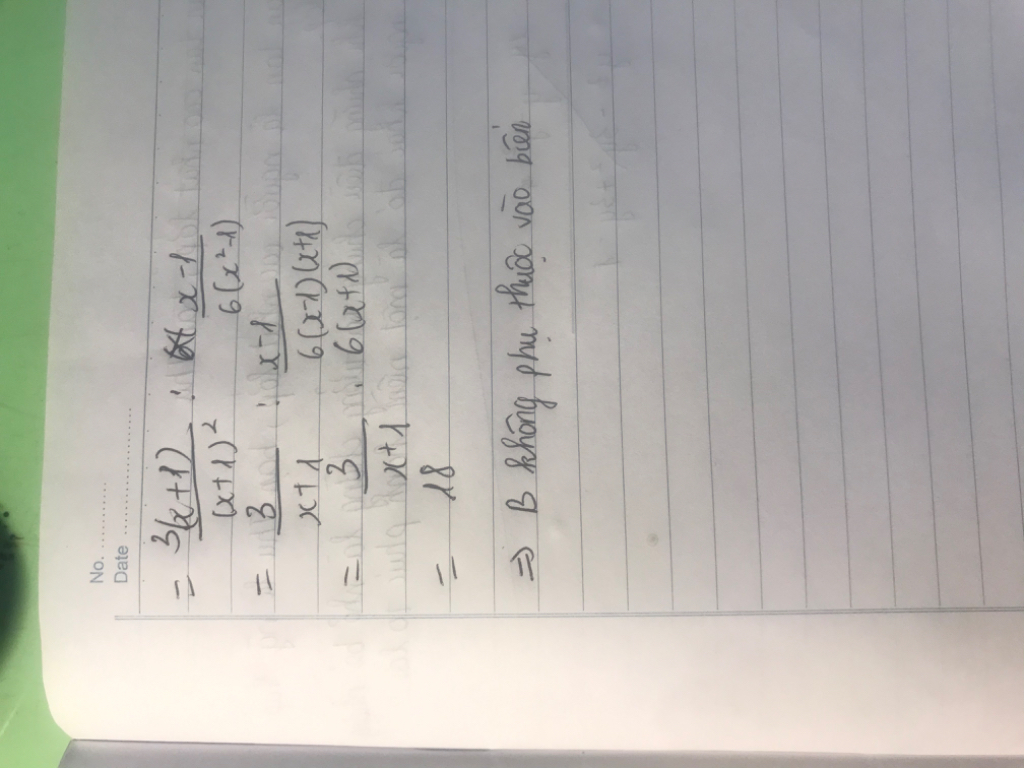 No. ............
Date ........................
= 3(x+1)/(x+1)² : x-1/6(x²-1)
= 3/x+1 : x-1/6(x-1)(x+1)
= 3/x+1 . 6(x+1)
= 18
⇒ B không phụ thuộc vào biến